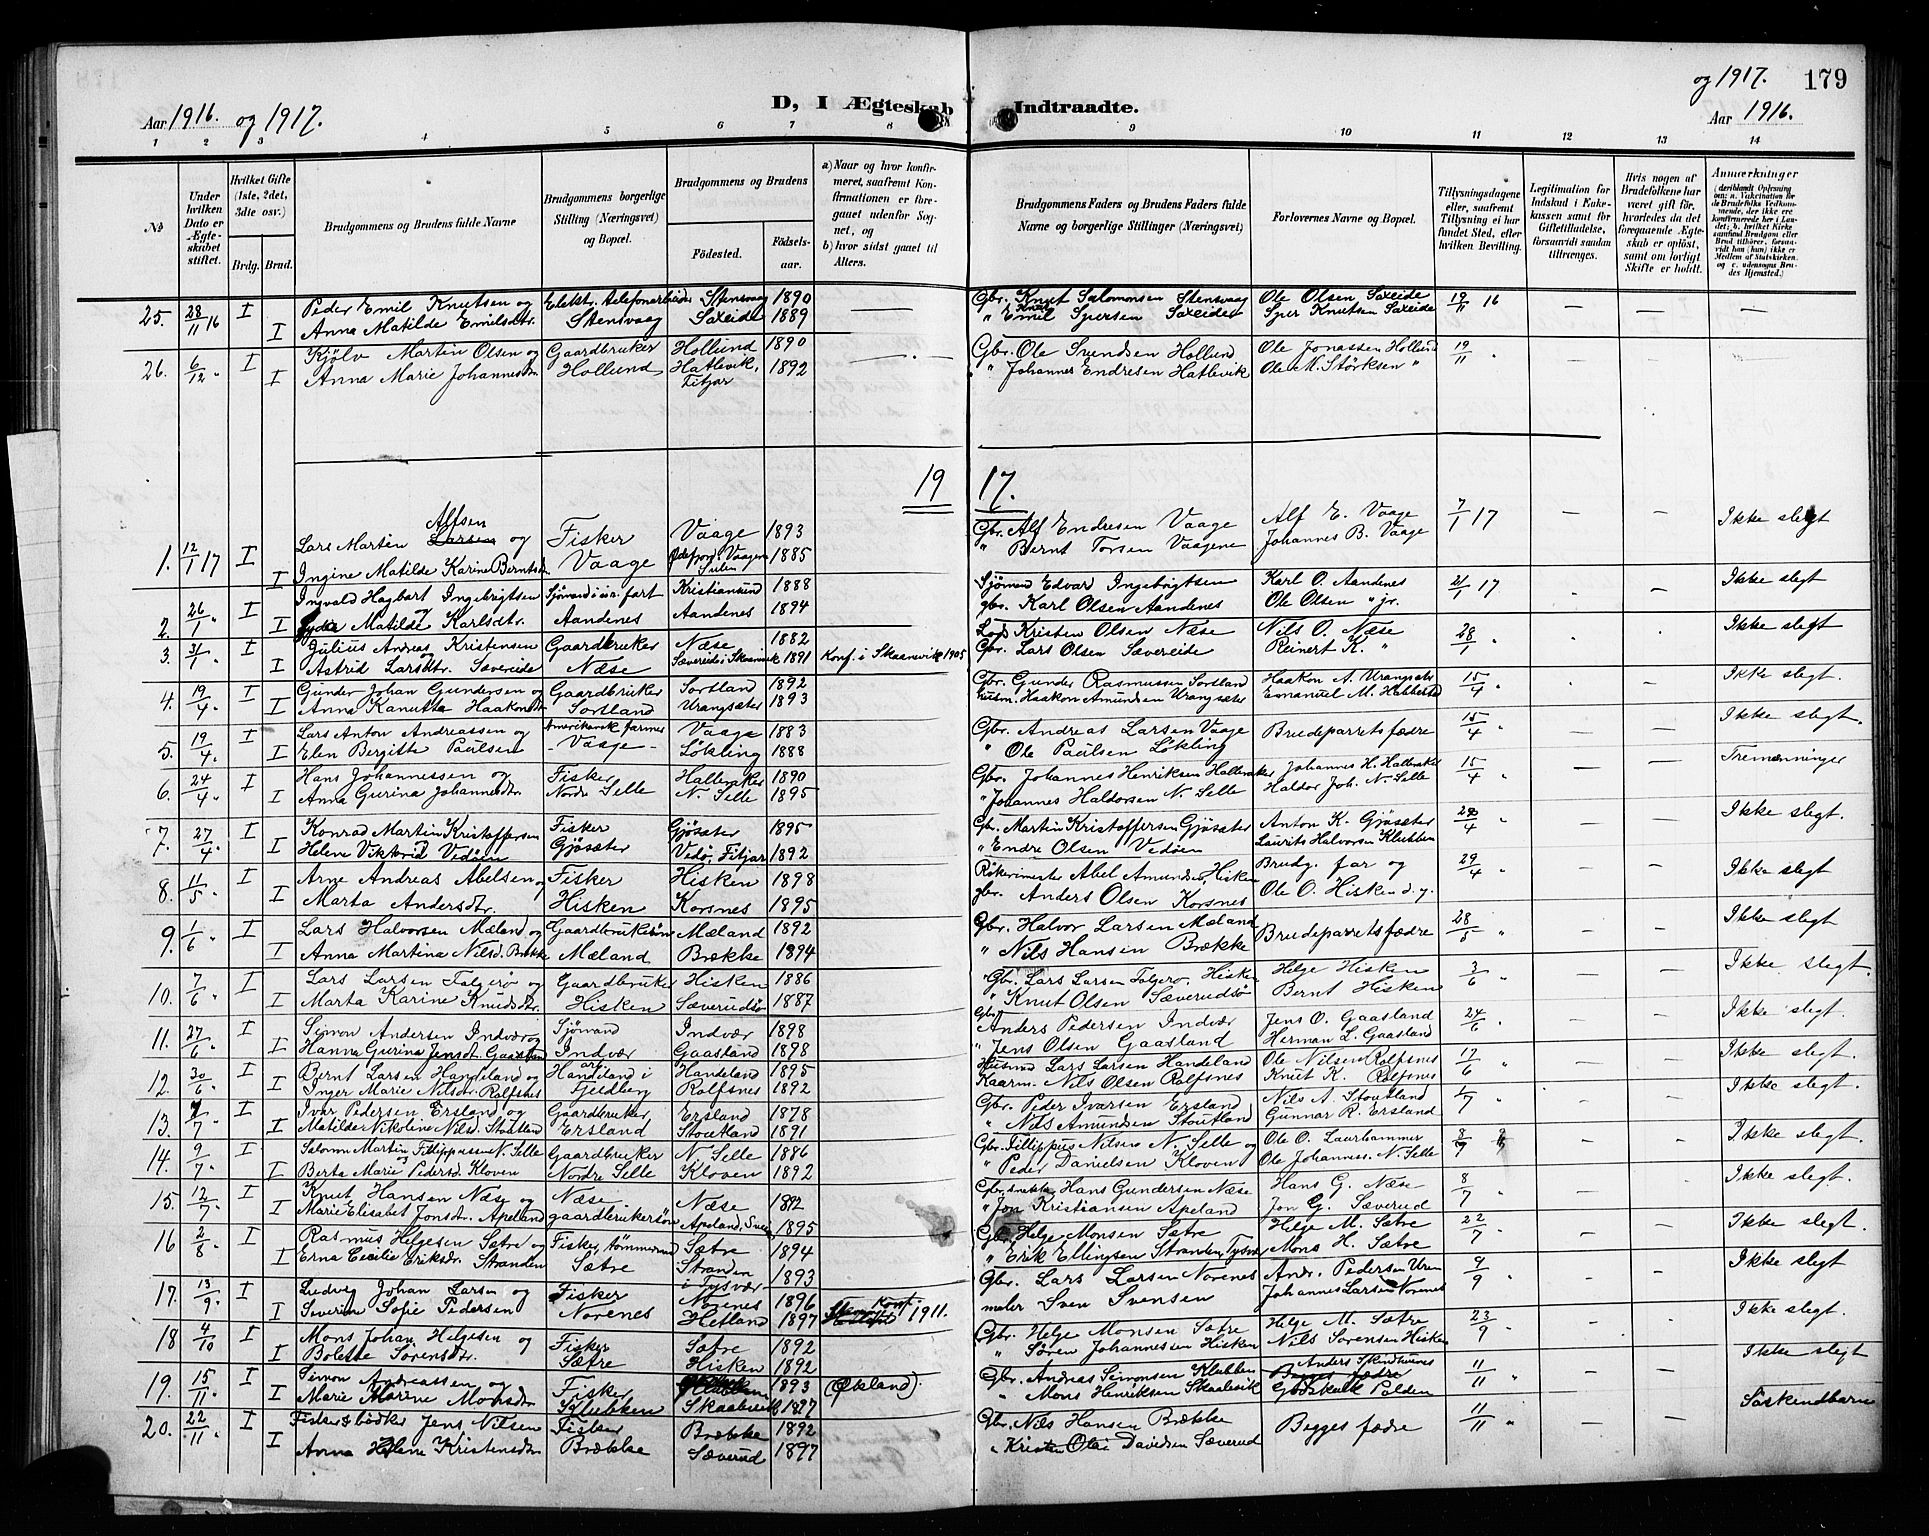 Aar 1916. og 1917.
D, I Ægteskab Indtraadte.
og 1917. 179
Aar 1916.
1 2 3 4 5 6 7 8 9 10 11 12 13 14
No
Under hvilken Dato er Ægteskabet stiftet.
Hvilket Gifte (1ste, 2det, 3die osv.)
Brdg. Brud.
Brudgommens og Brudens fulde Navne
Brudgommens borgerlige Stilling (Næringsvei) og Bopæl.
Brudgommens og Brudens
Fødested.
Fødselsaar.
a) Naar og hvor konfirmeret, saafremt Konfirmationen er foregaaet udenfor Sognet, og
b) hvor sidst gaaet til Alters.
Brudgommens Faders og Brudens Faders fulde Navne og borgerlige Stillinger (Næringsvei)
Forlovernes Navne og Bopæl.
Tillysningsdagene eller, saafremt Tillysning ei har fundet Sted, efter hvilken Bevilling.
Legitimation for Indskud i Enkekassen samt for Giftetilladelse, forsaavidt saadan tiltrænges.
Hvis nogen af Brudefolkene har været gift før, hvorledes da det foregaaende Ægteskab er opløst, samt om lovligt Skifte er holdt.
Anmærkninger
25. 28/11 16 I Peder Emil Knutsen og Elektr. telefonarbeider Stensvaag 1890 — Gbr. Knut Salomonsen Stensvaag Ole Olsen Saxeide 19/11 16 — —
I Anna Matilde Emilsdtr. Stensvaag Saxeide 1889 " Emil Knut Spersen Saxeide Sper Knutsen Saxeide
26. 6/12 " I Kjölv Martin Olsen og Gaardbruker Hollund 1890 — Gbr. Ole Svendsen Hollund Ole Jonassen Hollund 19/11 " — —
I Anna Marie Johannesdtr Hollund Hatlevik, Fitjar 1892 " Johannes Endresen Hatlevik Ole M. Störksen "
1917.
Alfsen
1. 12/1 17 I Lars Martin Larsen og Fisker Vaage 1893 Gbr. Alf Endresen Vaage Alf E. Vaage 7/1 17 — — Ikke slegt
I Ingine Matilde Karine Berntsdtr Vaage 1885 " Bernt Torsen Vaagene Johannes B. Vaage
2. 26/1 " I Ingvald Hagbart Ingebrigtsen og Sjömand i uir. fart Kristiansund 1888 Sjömand Edvar Ingebrigtsen Karl O. Aandenes 21/1 17 — — Ikke slegt
I Matilde Karlsdtr. Aandenes Aandenes 1894 gbr. Karl Olsen Aandenes Ole Olsen " jr.
3. 31/1 " I Julius Andreas Kristensen Gaardbruker Næse 1882 Lods Kristen Olsen Næse Nils O. Næse 28/1 " Ikke slegt
I Astrid Larsdtr. Sævereide Næse Sævereide i Skaanevik 1891 Konf. i Skaanevik 1905 Gbr. Lars Olsen Sævereide Reinert K. "
4. 19/4 " I Gunder Johan Gundersen og Gaardbruker Sortland 1892 Gbr. Gunder Rasmussen Sortland Haakon A. Urangsæter 15/4 " — — Ikke slegt.
I Anna Kanutta Haakonsdtr Sortland Urangsæter 1893 husm. Haakon Amundsen Urangsæter Emanuel M. Habbestad
5. 19/4 " I Lars Anton Andreassen og Amerikansk farmer Vaage 1883 Gbr. Andreas Larsen Vaage Brudeparrets fædre 15/4 " — — Ikke slegt.
I Elen Bergitte Paulsen - Vaage - Lökling 1888 " Ole Paulsen Lökling
6. 24/4 " I Hans Johannessen og Fisker Halleraker 1890 Gbr. Johannes Henriksen Halleraker Johannes H. Halleraker 15/4 " — — Tremænninger
I Anna Gurina Johannesdtr. Nordre Selle N. Selle 1895 " Johannes Haldorsen N. Selle Haldor Joh. N. Selle
7. 27/4 " I Konrad Martin Kristoffersen Fisker Gjösæter 1895 Gbr. Martin Kristoffersen Gjösæter Anton K. Gjösæter 22/4 " — — Ikke slegt.
I Helene Viktoria Vedöen Gjösæter Vedö, Fitjar 1892 " Endre Olsen Vedöen Laurits Halvorsen Klubben
8. 11/5 " I Arne Andreas Abelsen og Fisker Hisken 1898 Abel Amundsen, Hisken Brudg. far og 29/4 " — — Ikke slegt
I Marta Andersdtr. Hisken Korsnes 1895 gbr. Anders Olsen Korsnes Ole O. Hisken d.y.
9. 1/6 " I Lars Halvorsen Mæland og Gaardbrukersön Mæland 1892 Gbr. Halvor Larsen Mæland Brudeparrets fædre 28/5 " — — Ikke slegt
I Anna Martina Nilsd. Brække Mæland Brække 1894 " Nils Hansen Brække
10. 7/6 " I Lars Larsen Folgerö og Gaardbruker Hisken 1886 Gbr. Lars Larsen Folgerö, Hisken Helge Hisken 3/6 " — — Ikke slegt.
I Marta Karine Knudsdtr. Hisken Sæverudsö 1887 " Knut Olsen Sæverudsö Bernt Hisken
11. 27/6 " I Simon Andersen Indvær og Sjömand Indvær 1898 Gbr. Anders Pedersen Indvær Jens O. Gaasland 24/6 " — — Ikke slegt.
I Hanna Gurina Jensdt. Gaasland Indvær Gaasland 1898 " Jens Olsen Gaasland Herman L. Gaasland
12. 30/6 " I Bernt Larsen Handeland og Handeland i Handeland 1895 Husmd Lars Larsen Handeland Ole Nilsen Rolfsnes 17/6 " — — Ikke slegt.
I Inger Marie Nilsdtr. Rolfsnes Fjeldberg Rolfsnes 1892 Kaarm. Nils Olsen Rolfsnes Knut K. Rolfsnes
13. 7/7 I Ivar Pedersen Ersland og Gaardbruker, Ersland 1878 Gbr. Peder Iversen Ersland Nils A. Stoutland 1/7 " — Ikke slegt.
I Matilde Nikoline Nilsd. Stoutland Ersland Stoutland 1891 " Nils Amundsen Stoutland Gunnar R. Ersland
14. 9/7 " I Salomon Martin Fillippussen N. Selle og Gaardbruker N. Selle 1886 Gbr. Fillippus Nilsen N. Selle og Ole O. Laurhammer 8/7 — — Ikke slegt.
I Berta Marie Pedersd. Kloven Nordre Selle Kloven 1892 " Peder Danielsen Kloven Ole Johanness. N. Selle
15. 12/7 " I Knut Hansen Næse og Næse Næse 1892 Gbr. Hans Gundersen Næse Hans G. Næse 8/7 — — Ikke slegt.
I Marie Elisabet Jonsdtr. Apeland gaardbrukersön Apeland, Sveen 1895 " Jon Kristiansen Apeland Jon G. Sæverud
16 2/8 " I Rasmus Helgesen Sætre og Fisker, tömmermand Sætre 1894 Gbr. Helge Monsen Sætre Helge M. Sætre 22/7 " — — Ikke slegt.
I Erna Cecilie Eriksdr. Stranden Sætre Stranden i Tysvær 1893 " Erik Ellingsen Stranden, Tysvær Mons H. Sætre
17. 13/9 " I Ludvig Johan Larsen og Fisker Norenes 1896 Gbr. Lars Larsen Norenes Andr. Pedersen Uren 9/9 " — — Ikke slegt
I Severine Sofie Pedersen Norenes Hetland 1897 Konf. 1911. maler Sven Svensen Johannes Larsen Norenes
18 4/10 I Mons Johan Helgesen og Fisker Sætre 1892 Gbr. Helge Monsen Sætre Helge M. Sætre 23/9 " — — Ikke slegt.
I Bolette Sörensdtr. Sætre Hisken 1892 " Sören Johannessen Hisken Nils Sörensen Hisken
19. 15/11 " I Simon Andreassen og Fisker Klubben 1893 (Økland). Gbr. Andreas Simonsen Klubben Anders Skimhuvnes Begges fædre 11/11 " — — Ikke slegt
I Marie Marine Monsdtr Klubben Skaalevik 1897 " Mons Henriksen Skaalevik Godskalk Polden
20. 22/11 " I Fisker & bödker Jens Nilsen Fisker Brække 1892 Gbr. Nils Hansen Brække Begges fædre 11/11 " — — Söskendbarn
I Anna Helene Kristensdtr Brække Sæverud 1897 " Kristen Olai Davidsen Sæverud